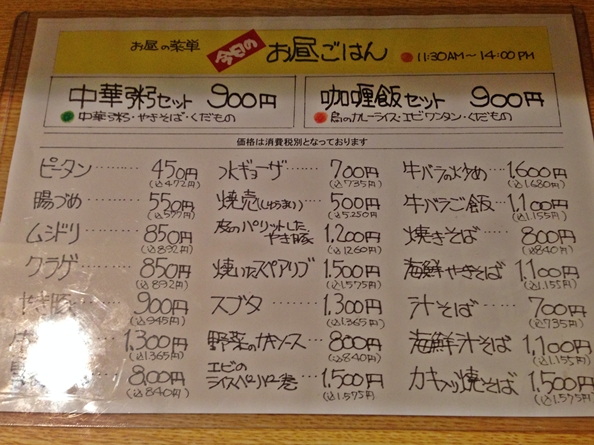 お昼の菜単 今日の お昼ごはん 11:30AM～14:00PM
中華粥セット 900円
中華粥・やきそば・くだもの
咖喱飯セット 900円
鳥のカレーライス・エビワンタン・くだもの
価格は消費税別となっております
ピータン 450円
(込472円)
腸づめ 550円
(込577円)
ムシドリ 850円
(込892円)
クラゲ 850円
(込892円)
900円
(込945円)
1,300円
(込1.365円)
800円
(込840円)
水ギョーザ 700円
(込735円)
焼売(しゅうまい) 500円
(込5250円)
皮のパリットした
やき豚 1,200円
(込1260円)
焼いたスペアリブ 1,500円
(込1.575円)
スブタ 1,300円
(込1.365円)
野菜のカキソース 800円
(込840円)
エビの
ライスペーパー巻 1,500円
(込1.575円)
牛バラの炒め 1,600円
(込1.680円)
牛バラご飯 1,100円
(込1.155円)
焼きそば 800円
(込840円)
海鮮やきそば 1,100円
(込1.155円)
汁そば 700円
(込735円)
海鮮汁そば 1,100円
(込1.155円)
カキ入り焼そば 1,500円
(込1.575円)